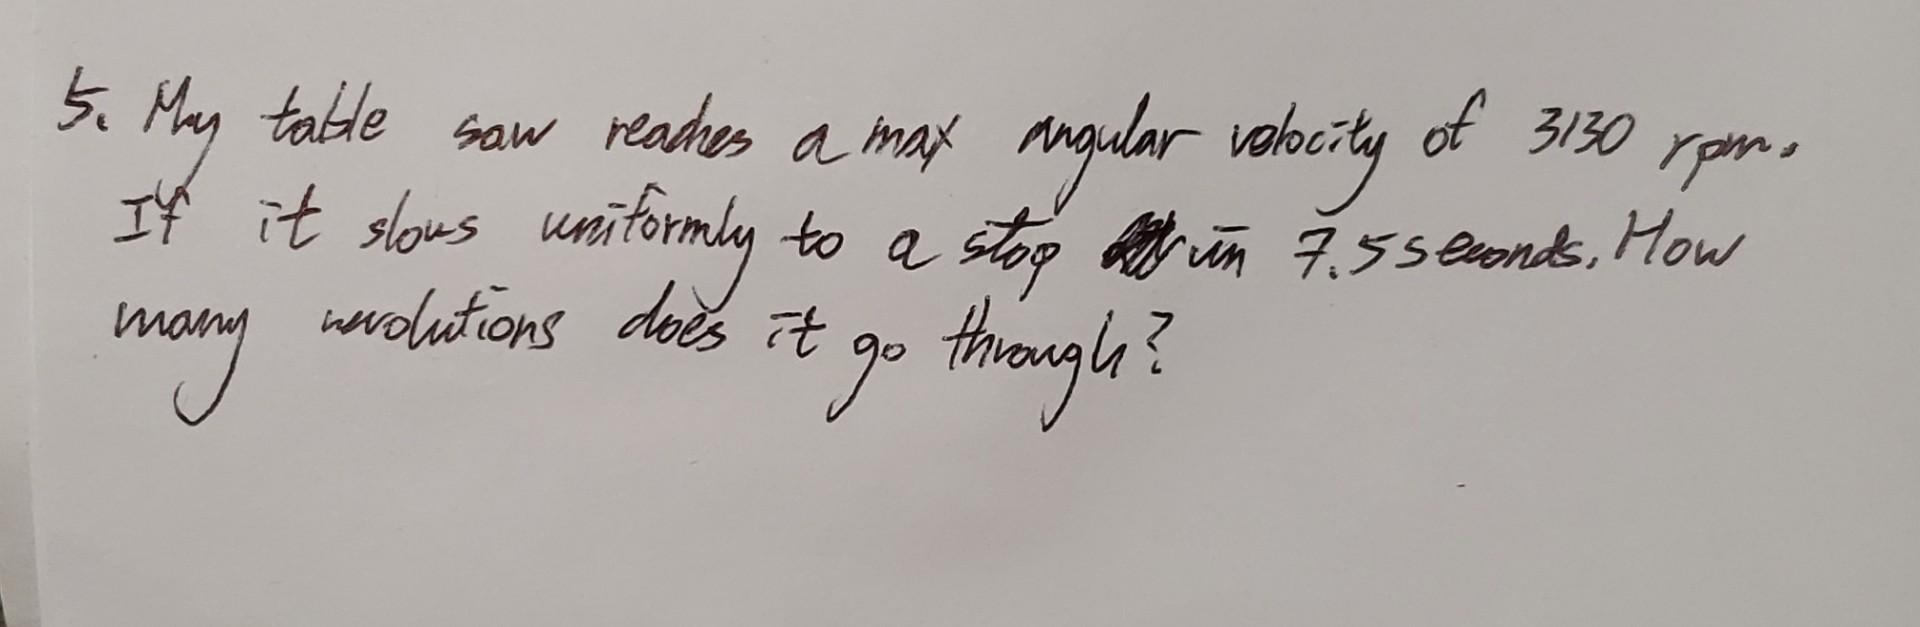 5. My table saw reaches a max angular velocity of 3130 rpm.
If it slows uniformly to a stop in 7.5 seconds. How
many revolutions does it go through?